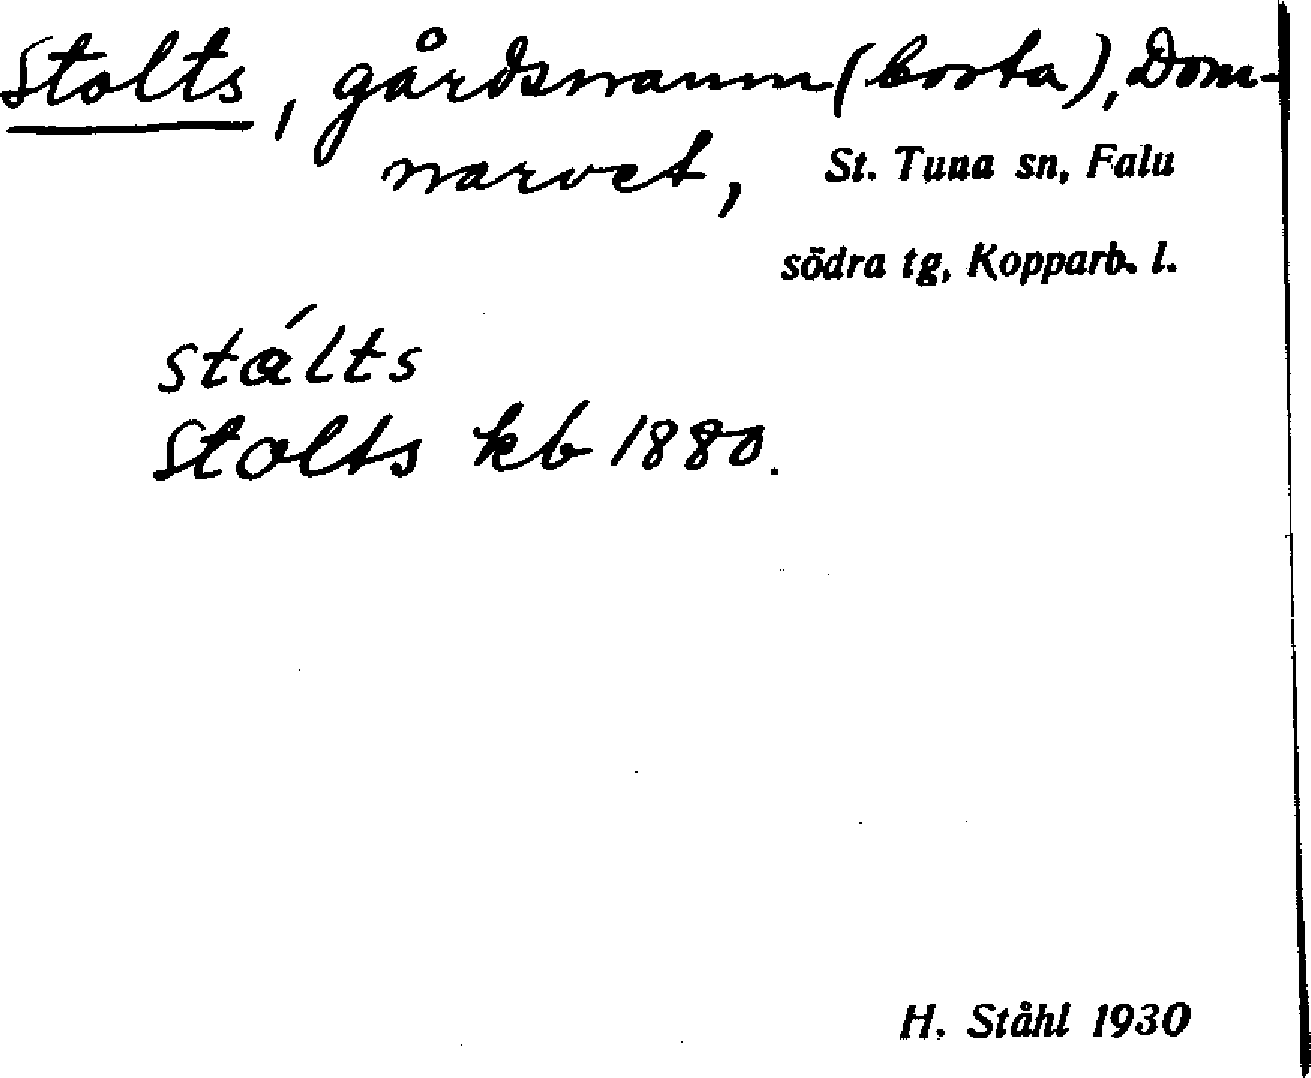 Stolts, gårdsnamn (borta), Dom-
narvet, St. Tuna sn, Falu
södra tg, Kopparb. l.
stálts
Stolts kb 1880.
H. Ståhl 1930